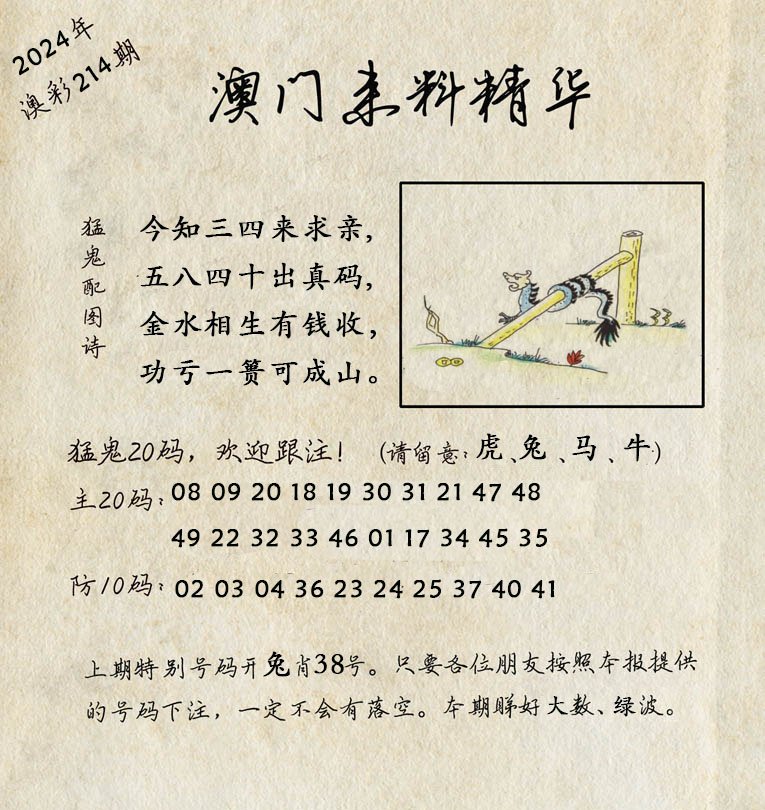 2024年
澳彩214期
澳门来料精华
猛鬼配图诗
今知三四来求亲，
五八四十出真码，
金水相生有钱收，
功亏一篑可成山。
猛鬼20码，欢迎跟注！（请留意：虎、兔、马、牛）
主20码：08 09 20 18 19 30 31 21 47 48
49 22 32 33 46 01 17 34 45 35
防10码：02 03 04 36 23 24 25 37 40 41
上期特别号码开兔肖38号。只要各位朋友按照本报提供
的号码下注，一定不会有落空。本期睇好大数、绿波。